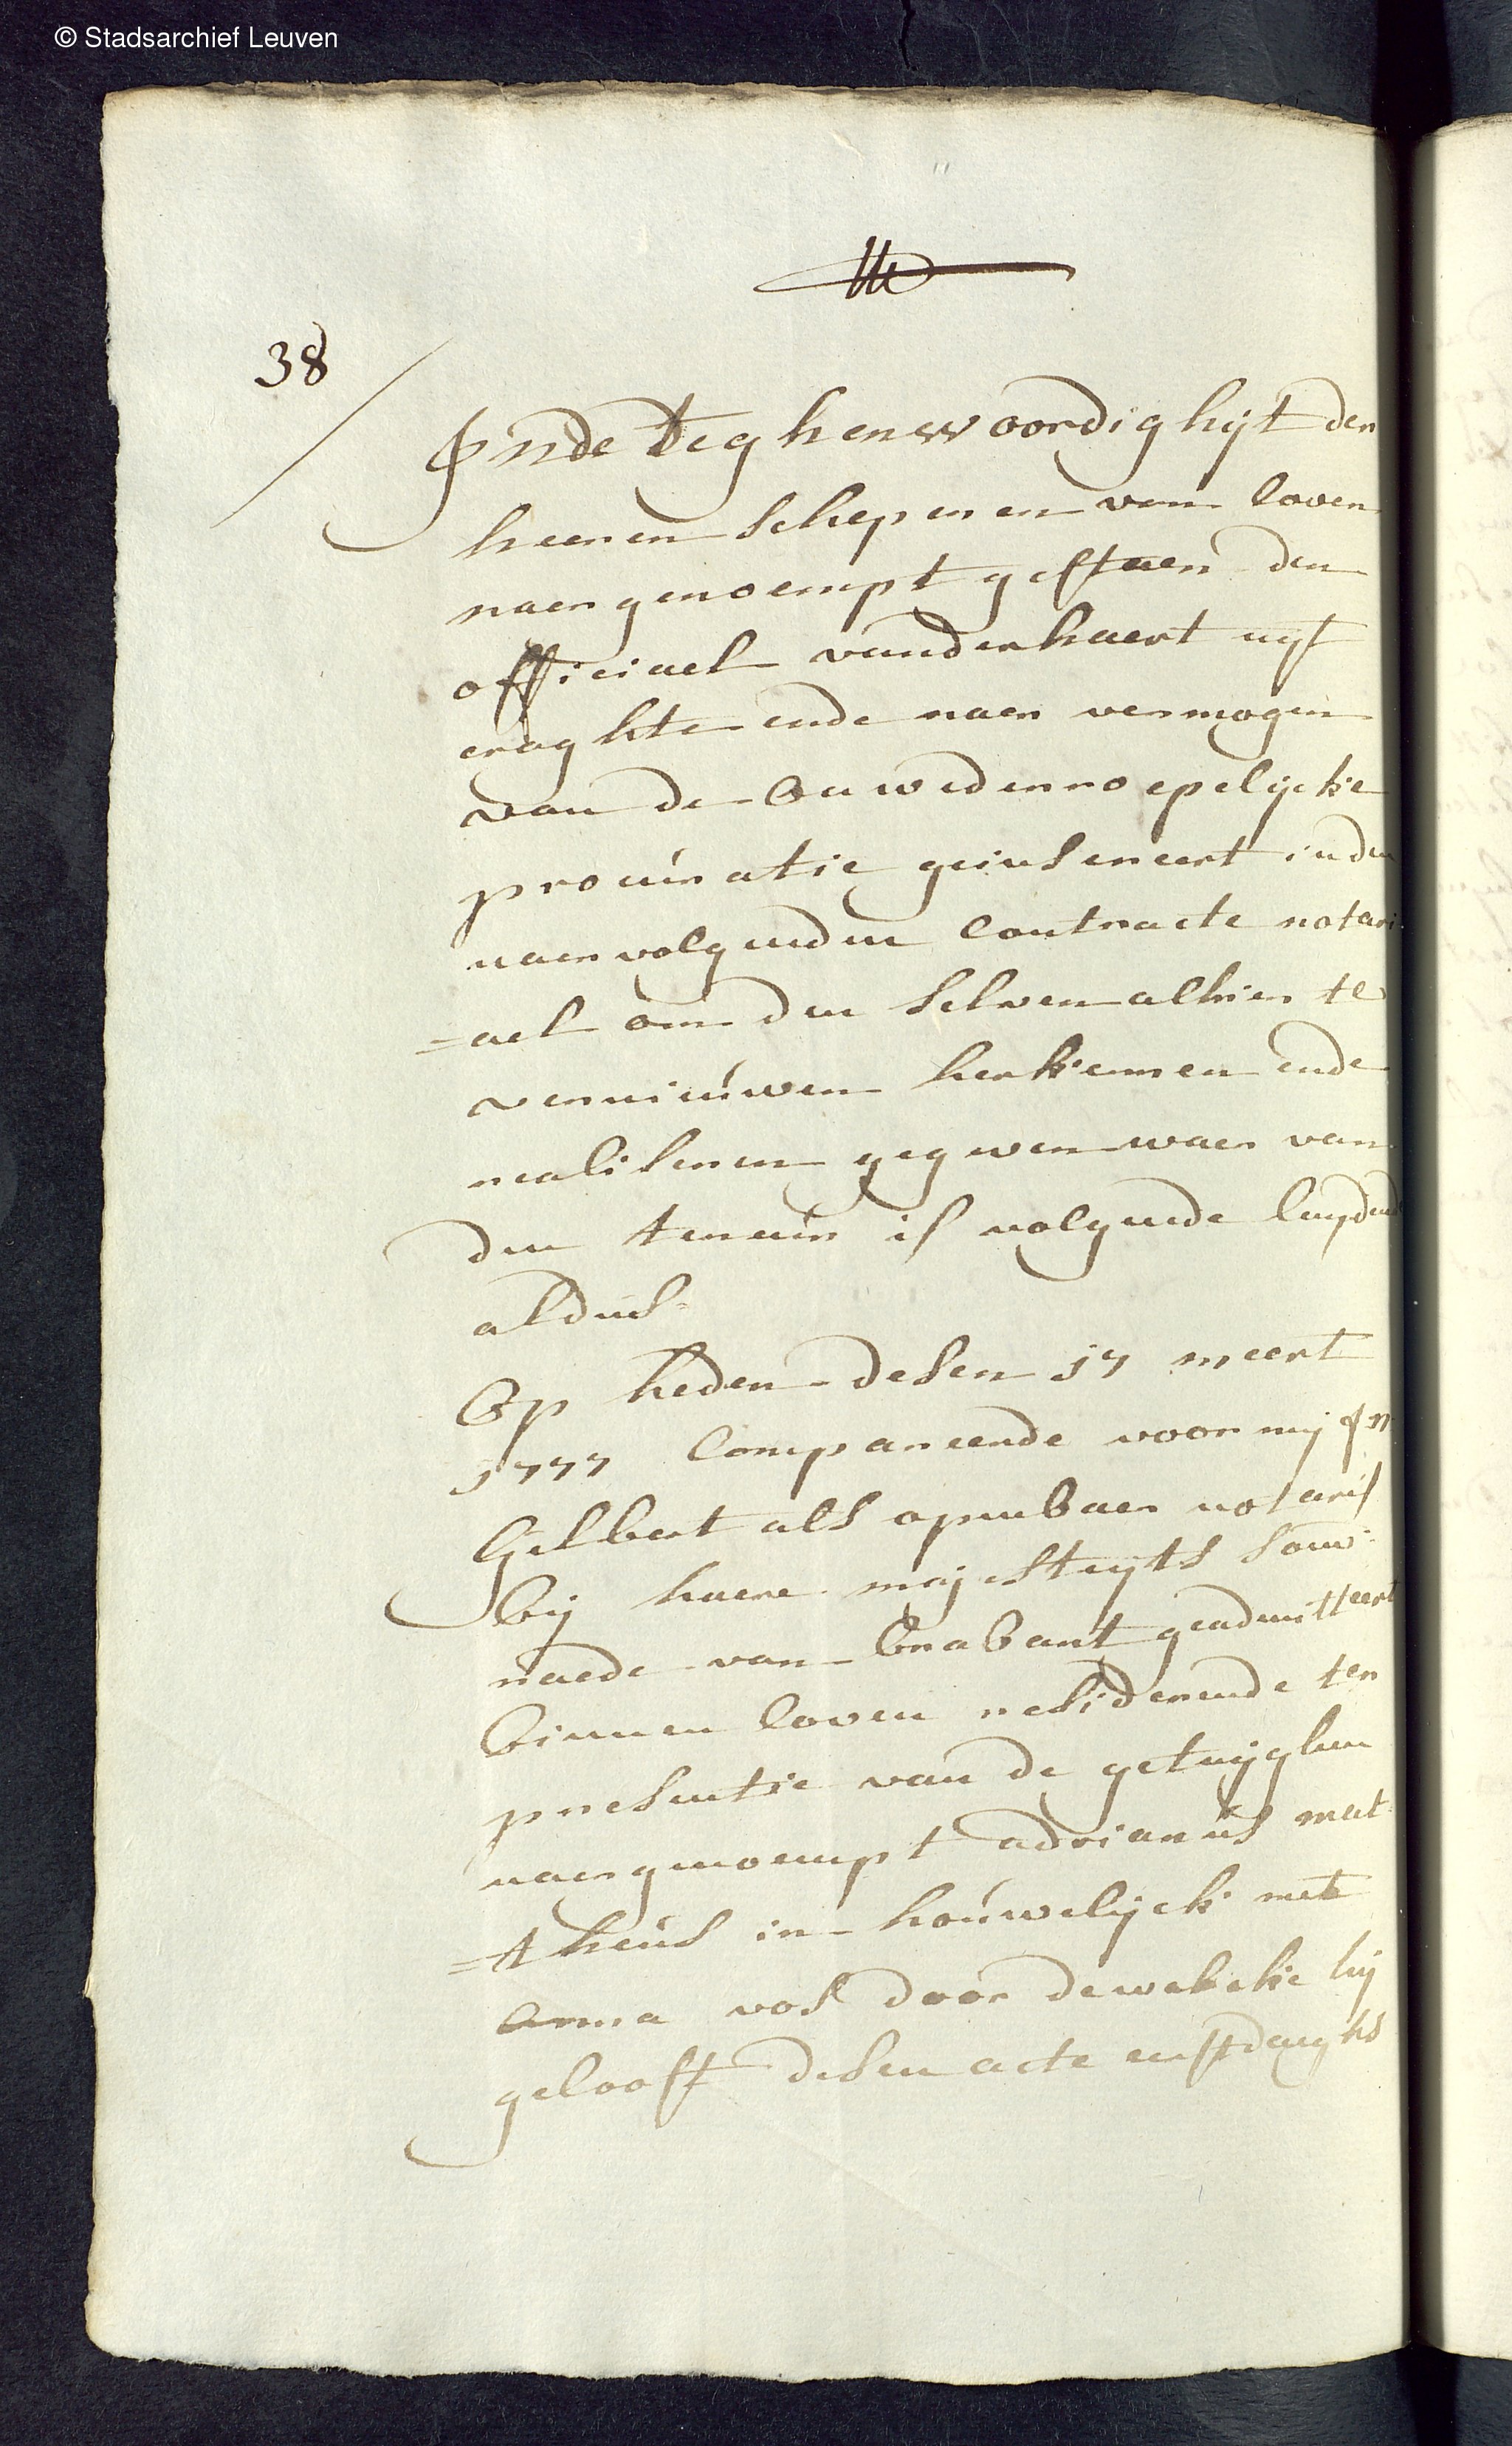 © Stadsarchief Leuven
38
Inde teghenwoordighyt der
heeren schepenen van loven
naergenoempt gestaen den
officiael vanderhaert uijt
craghte ende naer vermogen
van de onwederroepelijcke
procuratie geinsereert inden
naervolgenden contracte notari
=ael om den selven alhier te
vernieuwen herkennen ende
realiseren gegeven waer van
den teneur is volgende luydende
aldus
Op heden desen 17 meert
1777 Compareerde voor mij
Gilbert als openbaer notaris
bij haere majesteyts souv:
raede van Brabant geadmitteert
binnen loven residerende ter
presentie van de getuijghen
naergenoempt adrianus mat
=theus in houwelijck met
anna vos door dewelcke hij
gelooft desen acte